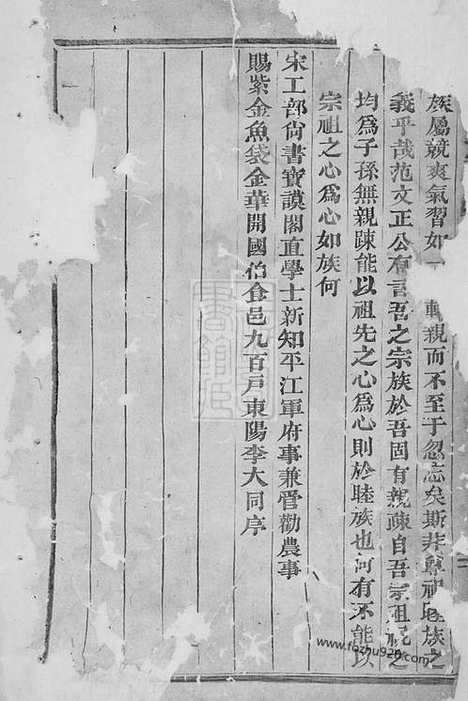 族屬競爽氣習如 親而不至于忽忘矣斯非尊祖睦族之
義乎哉范文正公有言吾之宗族於吾固有親疎自吾宗祖視之
均爲子孫無親疎能以祖先之心爲心則於睦族也何有不能以
宗祖之心爲心如族何
宋工部尙書寶謨閣直學士新知平江軍府事兼管勸農事
賜紫金魚袋金華開國伯食邑九百戸東陽李大同序
www.fozhu920.com